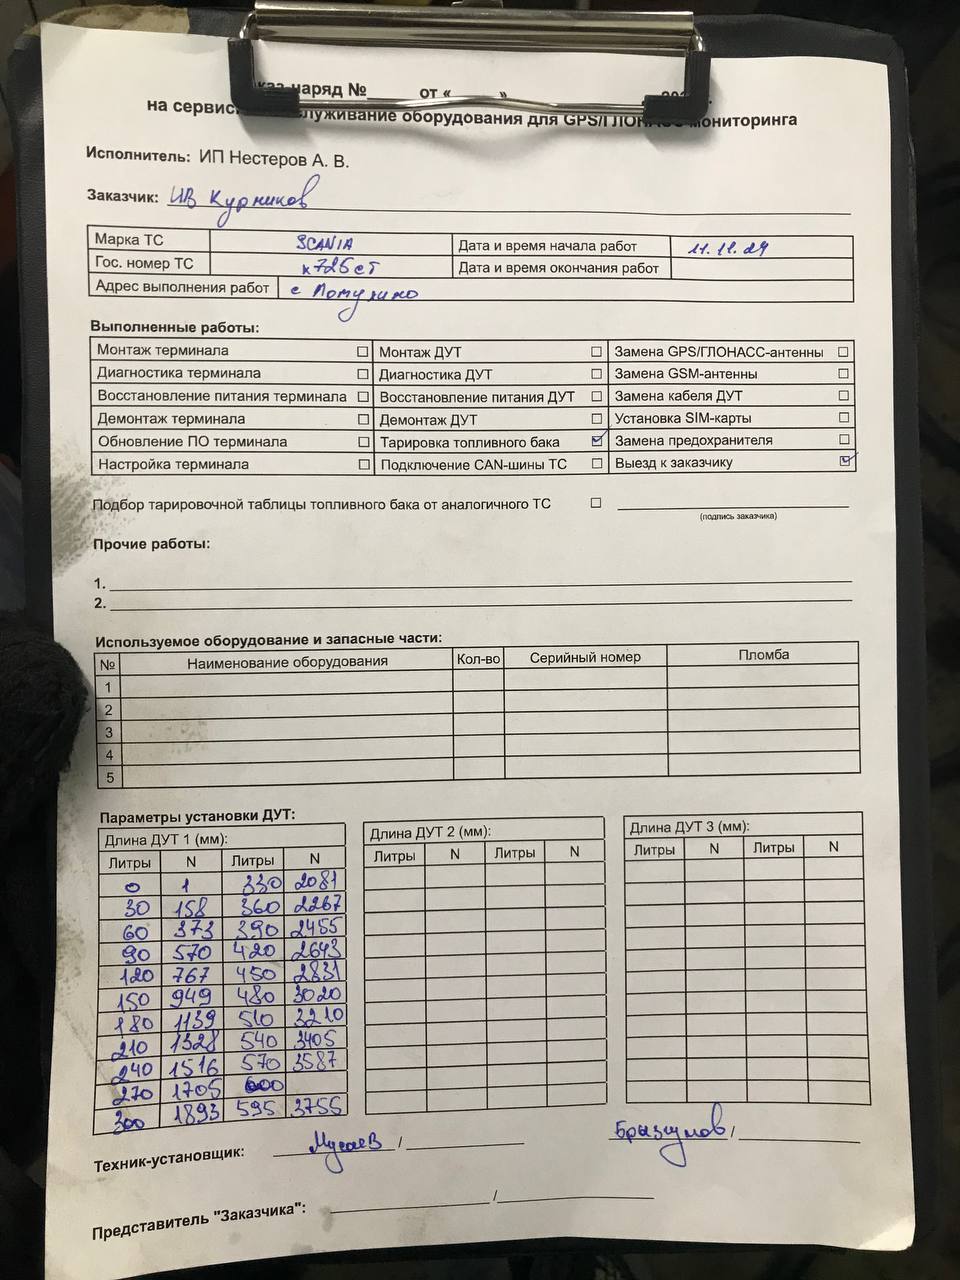 наряд №_____ от «____»
на сервис луживание оборудования для GPS/ГЛОНАСС мониторинга
Исполнитель: ИП Нестеров А. В.
Заказчик: ИВ Курников
Марка ТС SCANIA Дата и время начала работ 11.11.24
Гос. номер ТС к725ст Дата и время окончания работ
Адрес выполнения работ с
Выполненные работы:
Монтаж терминала ☐ Монтаж ДУТ ☐ Замена GPS/ГЛОНАСС-антенны ☐
Диагностика терминала ☐ Диагностика ДУТ ☐ Замена GSM-антенны ☐
Восстановление питания терминала ☐ Восстановление питания ДУТ ☐ Замена кабеля ДУТ ☐
Демонтаж терминала ☐ Демонтаж ДУТ ☐ Установка SIM-карты ☐
Обновление ПО терминала ☐ Тарировка топливного бака ☑ Замена предохранителя ☐
Настройка терминала ☐ Подключение CAN-шины ТС ☐ Выезд к заказчику ☑
Подбор тарировочной таблицы топливного бака от аналогичного ТС ☐
(подпись заказчика)
Прочие работы:
1.
2.
Используемое оборудование и запасные части:
№ Наименование оборудования Кол-во Серийный номер Пломба
1
2
3
4
5
Параметры установки ДУТ:
Длина ДУТ 1 (мм): Длина ДУТ 2 (мм): Длина ДУТ 3 (мм):
Литры N Литры N Литры N Литры N Литры N Литры N
0 1 330 2081
30 158 360 2267
60 373 390 2455
90 570 420 2643
120 767 450 2831
150 949 480 3020
180 1139 510 3210
210 1328 540 3405
240 1516 570 3587
270 1705 600
300 1893 595 3755
Техник-установщик: Мусаев / /
Представитель "Заказчика": /